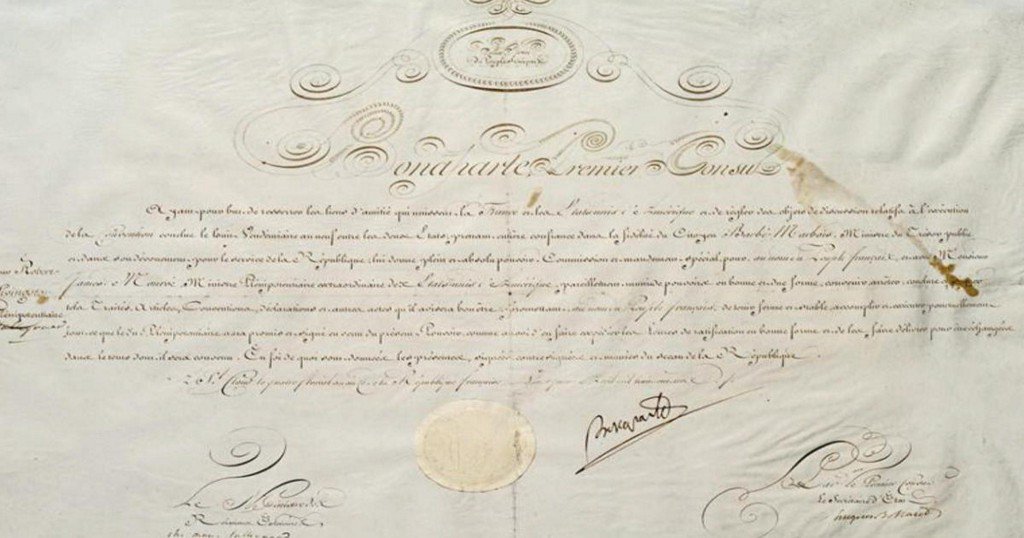 Au Nom
du Peuple français
Bonaparte Premier Consul
Ayant pour but de resserrer les liens d'amitié qui unissent la France et les Etats unis d'Amérique et de régler des objets de discussion relatifs à l'exécution
de la Convention conclue le Vendémiaire an neuf entre les deux Etats, prenant entière confiance dans la fidélité du Citoyen Barbé Marbois, Ministre du Trésor public
et dans son dévouement pour le service de la République, lui donne plein et absolu pouvoir, Commission et mandement spécial pour au nom du Peuple français, et avec Monsieur
Robert
Livingston
Plénipotentiaire
James Monroe Ministre Plénipotentiaire extraordinaire des Etats unis d'Amérique, pareillement muni de pouvoirs en bonne et due forme, convenir arrêter, conclure
tels Traités, Articles, Conventions, déclarations et autres actes qu'il avisera bon être; promettant au nom du Peuple français, de tenir ferme et stable, accomplir et exécuter ponctuellement
tout ce que le dit Plénipotentiaire aura promis et signé en vertu du présent Pouvoir, comme aussi d'en faire expédier les Lettres de ratification en bonne forme et de les faire délivrer pour être échangées
dans le tems dont il sera convenu. En foi de quoi sont données les présentes, signées, contresignées et munies du sceau de la République
à St. Cloud le quatre floréal an de la République française
Bonaparte
Le Ministre des
Relations Extérieures
Par le Premier Consul
Le Secrétaire d'Etat
Hugues B. Maret